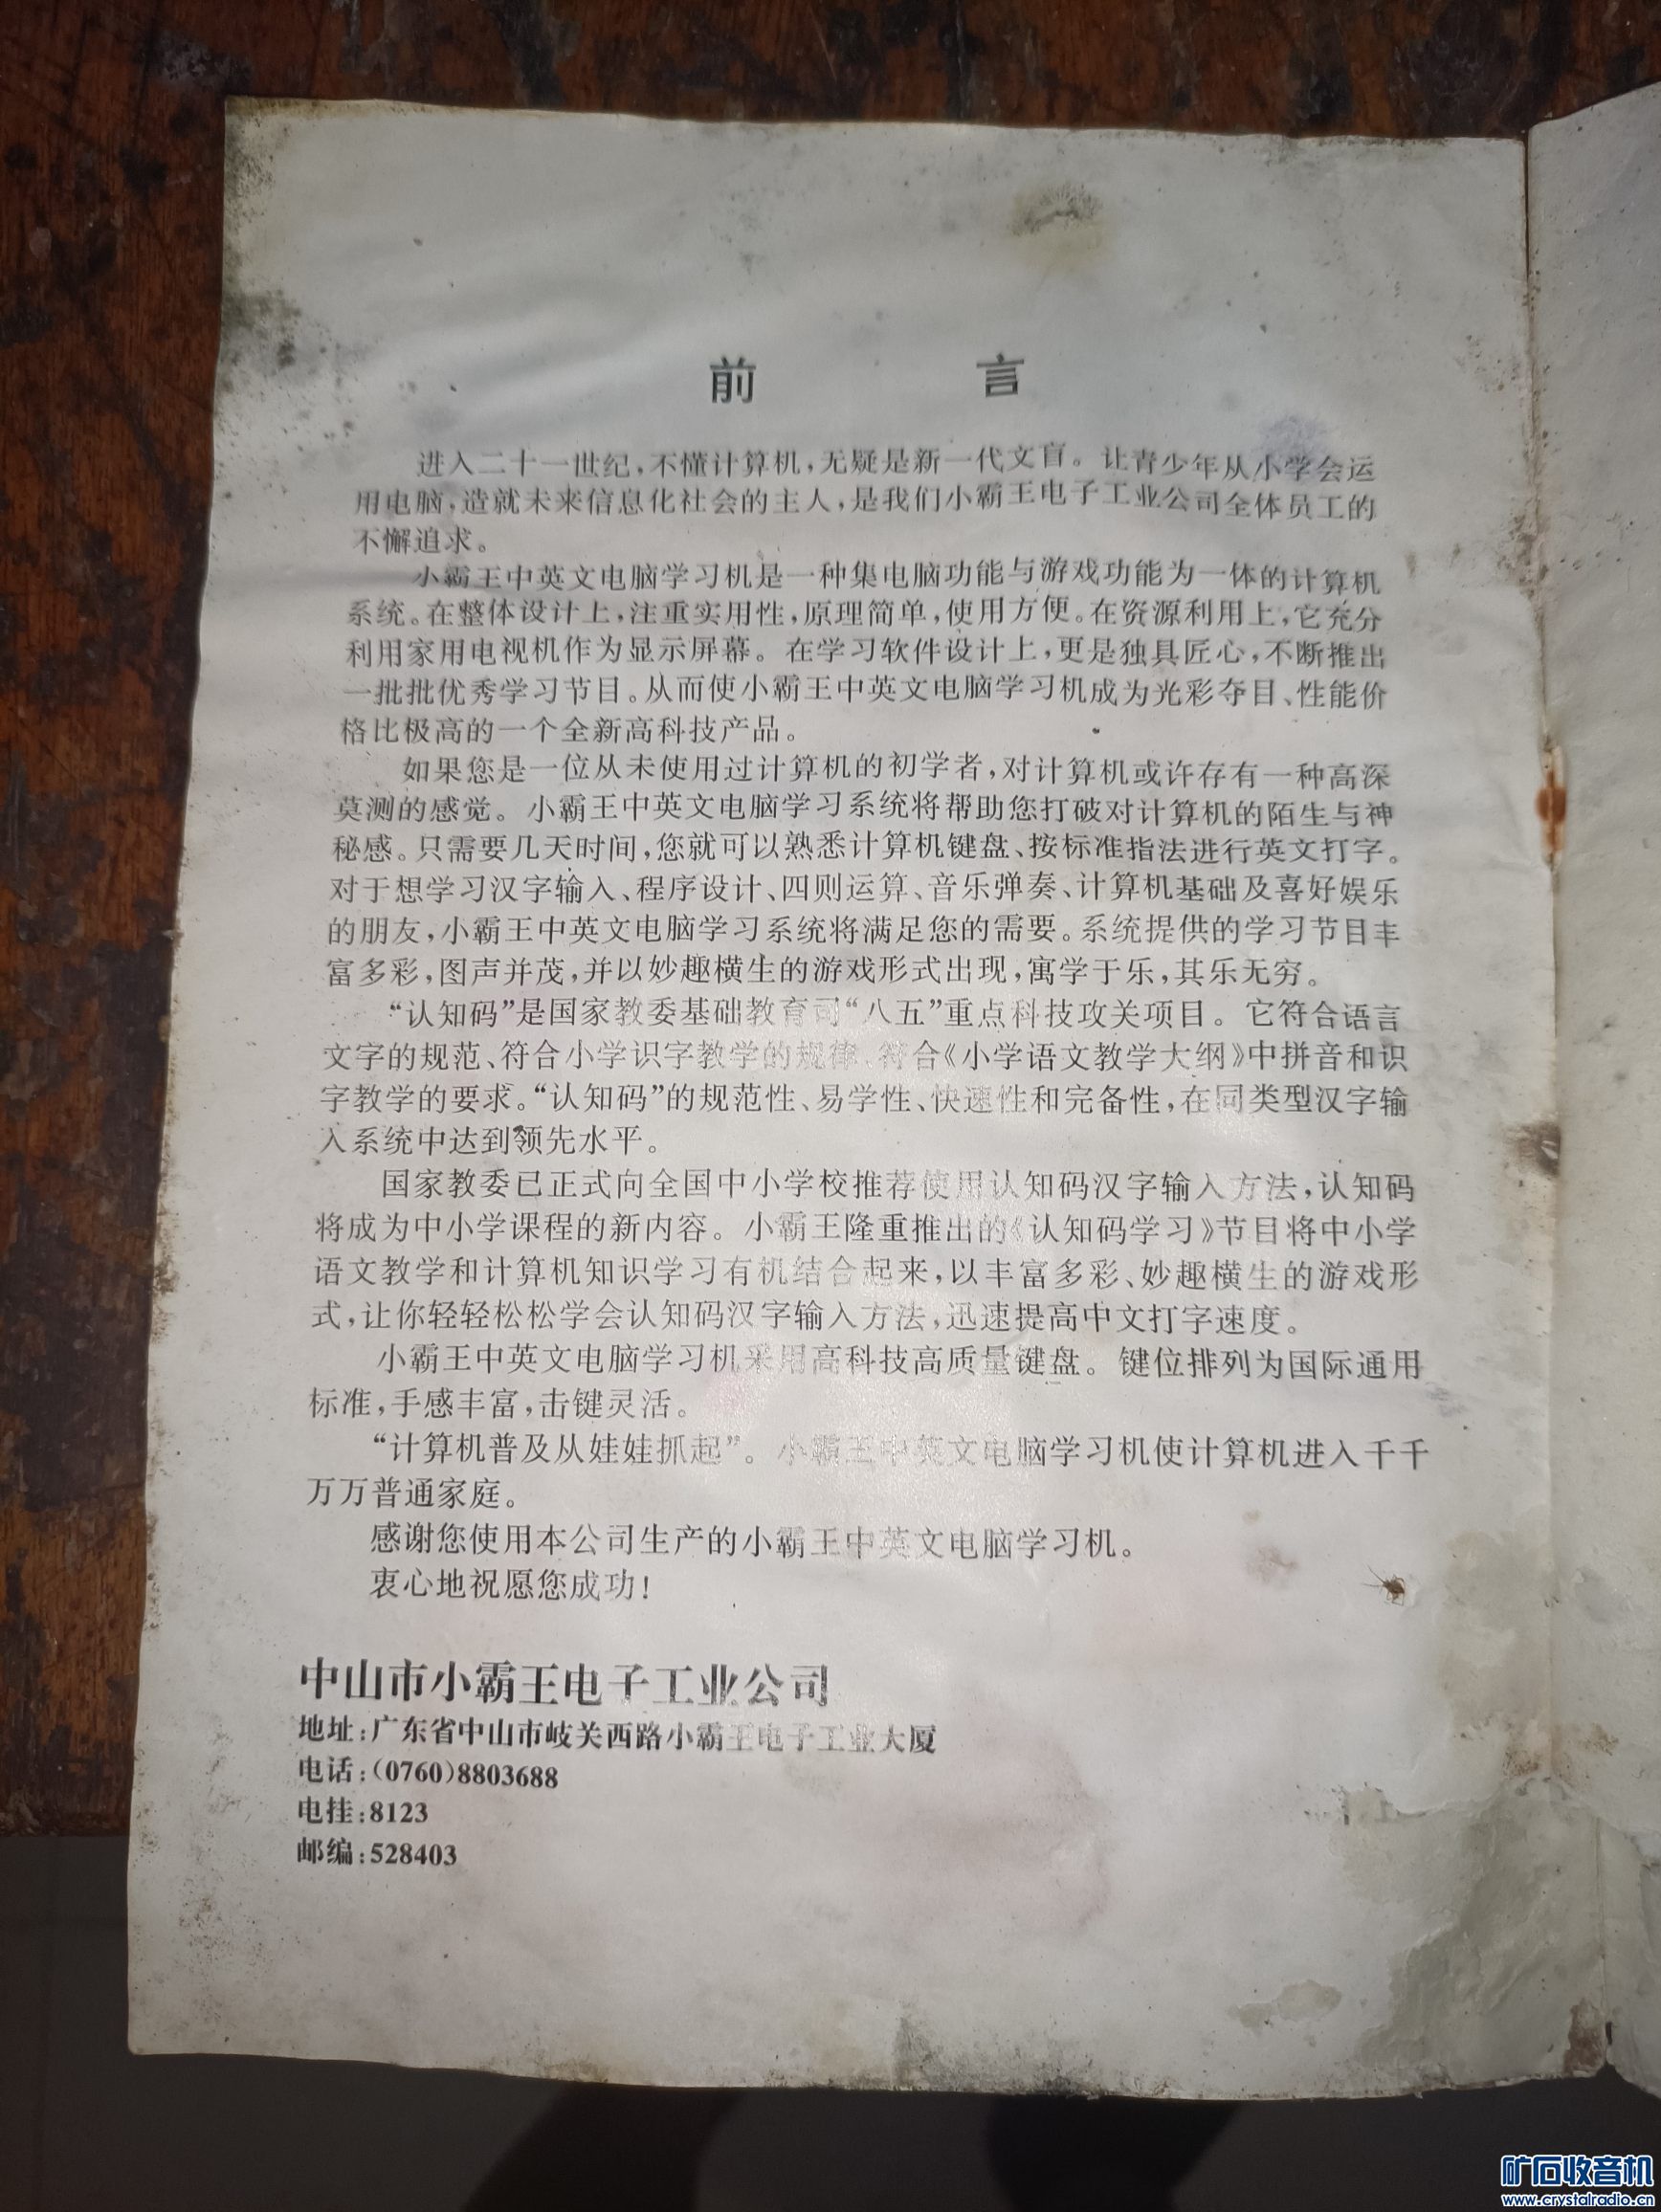 前言
进入二十一世纪,不懂计算机,无疑是新一代文盲。让青少年从小学会运
用电脑,造就未来信息化社会的主人,是我们小霸王电子工业公司全体员工的
不懈追求。
小霸王中英文电脑学习机是一种集电脑功能与游戏功能为一体的计算机
系统。在整体设计上,注重实用性,原理简单,使用方便。在资源利用上,它充分
利用家用电视机作为显示屏幕。在学习软件设计上,更是独具匠心,不断推出
一批批优秀学习节目。从而使小霸王中英文电脑学习机成为光彩夺目、性能价
格比极高的一个全新高科技产品。
如果您是一位从未使用过计算机的初学者,对计算机或许存有一种高深
莫测的感觉。小霸王中英文电脑学习系统将帮助您打破对计算机的陌生与神
秘感。只需要几天时间,您就可以熟悉计算机键盘、按标准指法进行英文打字。
对于想学习汉字输入、程序设计、四则运算、音乐弹奏、计算机基础及喜好娱乐
的朋友,小霸王中英文电脑学习系统将满足您的需要。系统提供的学习节目丰
富多彩,图声并茂,并以妙趣横生的游戏形式出现,寓学于乐,其乐无穷。
“认知码”是国家教委基础教育司“八五”重点科技攻关项目。它符合语言
文字的规范、符合小学识字教学的规律、符合《小学语文教学大纲》中拼音和识
字教学的要求。“认知码”的规范性、易学性、快速性和完备性,在同类型汉字输
入系统中达到领先水平。
国家教委已正式向全国中小学校推荐使用认知码汉字输入方法,认知码
将成为中小学课程的新内容。小霸王隆重推出的《认知码学习》节目将中小学
语文教学和计算机知识学习有机结合起来,以丰富多彩、妙趣横生的游戏形
式,让你轻轻松松学会认知码汉字输入方法,迅速提高中文打字速度。
小霸王中英文电脑学习机采用高科技高质量键盘。键位排列为国际通用
标准,手感丰富,击键灵活。
“计算机普及从娃娃抓起”。小霸王中英文电脑学习机使计算机进入千千
万万普通家庭。
感谢您使用本公司生产的小霸王中英文电脑学习机。
衷心地祝愿您成功!
中山市小霸王电子工业公司
地址:广东省中山市岐关西路小霸王电子工业大厦
电话:(0760)8803688
电挂:8123
邮编:528403
矿石收音机
www.crystalradio.cn